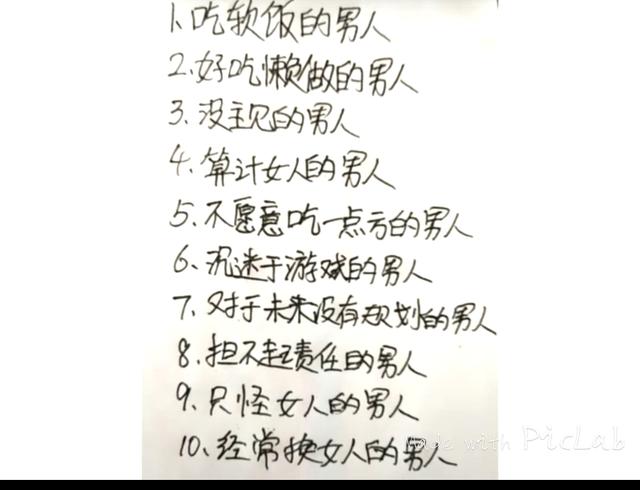 1、吃软饭的男人
2、好吃懒做的男人
3、没主见的男人
4、算计女人的男人
5、不愿意吃一点亏的男人
6、沉迷于游戏的男人
7、对于未来没有规划的男人
8、担不起责任的男人
9、只怪女人的男人
10、经常换女人的男人
Made with PicLab